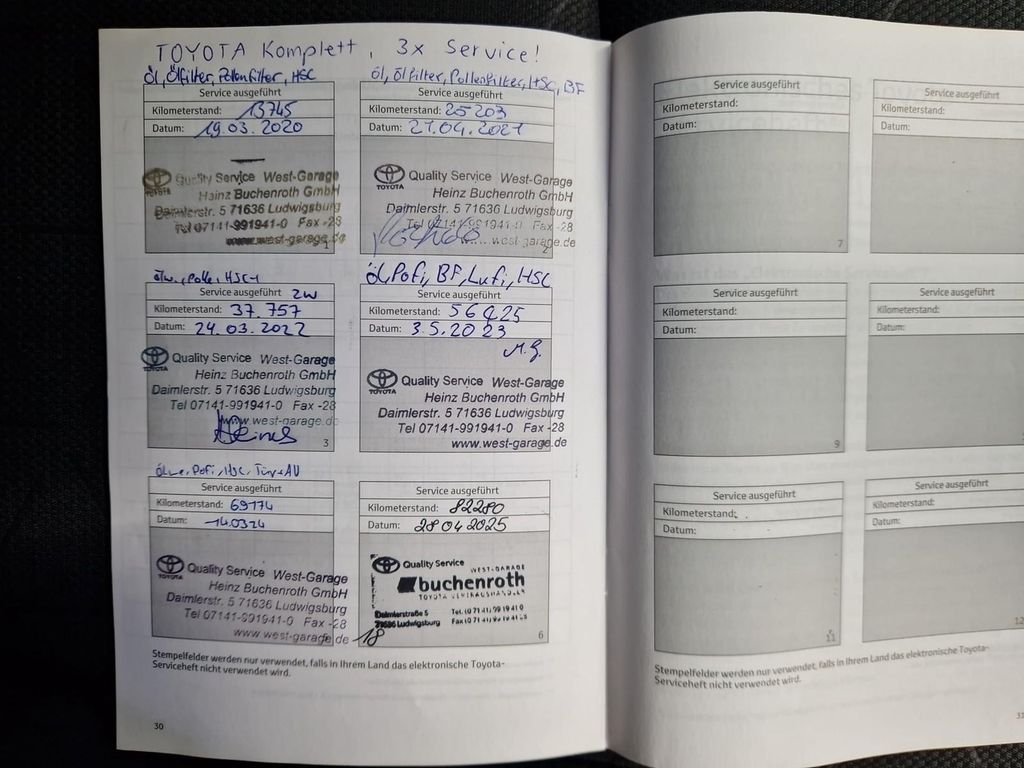 TOYOTA Komplett, 3x Service!
Öl, Ölfilter, Pollenfilter, HSC
Service ausgeführt
Kilometerstand: 13745
Datum: 19.03.2020
TOYOTA Quality Service West-Garage
Heinz Buchenroth GmbH
Daimlerstr. 5 71636 Ludwigsburg
Tel 07141-991941-0 Fax -28
www.west-garage.de
1
Öl, Ölfilter, Pollenfilter, HSC, BF
Service ausgeführt
Kilometerstand: 25203
Datum: 21.04.2021
TOYOTA Quality Service West-Garage
Heinz Buchenroth GmbH
Daimlerstr. 5 71636 Ludwigsburg
Tel 07141-991941-0 Fax -28
www.west-garage.de
2
Service ausgeführt
Kilometerstand: 37.757
Datum: 24.03.2022
TOYOTA Quality Service West-Garage
Heinz Buchenroth GmbH
Daimlerstr. 5 71636 Ludwigsburg
Tel 07141-991941-0 Fax -28
www.west-garage.de
3
Öl, Pofi, BF, Lufi, HSC
Service ausgeführt
Kilometerstand: 56425
Datum: 3.5.2023
TOYOTA Quality Service West-Garage
Heinz Buchenroth GmbH
Daimlerstr. 5 71636 Ludwigsburg
Tel 07141-991941-0 Fax -28
www.west-garage.de
Service ausgeführt
Kilometerstand: 69174
Datum: 14.0324
TOYOTA Quality Service West-Garage
Heinz Buchenroth GmbH
Daimlerstr. 5 71636 Ludwigsburg
Tel 07141-991941-0 Fax -28
www.west-garage.de
Service ausgeführt
Kilometerstand: 82280
Datum: 28 04 2025
TOYOTA Quality Service WEST-GARAGE
buchenroth
TOYOTA VERTRAGSHÄNDLER
Daimlerstraße 5
Ludwigsburg
18
6
Stempelfelder werden nur verwendet, falls in Ihrem Land das elektronische Toyota-
Serviceheft nicht verwendet wird.
30
Service ausgeführt
Kilometerstand:
Datum:
7
Service ausgeführt
Kilometerstand:
Datum:
Service ausgeführt
Kilometerstand:
Datum:
9
Service ausgeführt
Kilometerstand:
Datum:
Service ausgeführt
Kilometerstand:
Datum:
11
Service ausgeführt
Kilometerstand:
Datum:
12
Stempelfelder werden nur verwendet, falls in Ihrem Land das elektronische Toyota-
Serviceheft nicht verwendet wird.